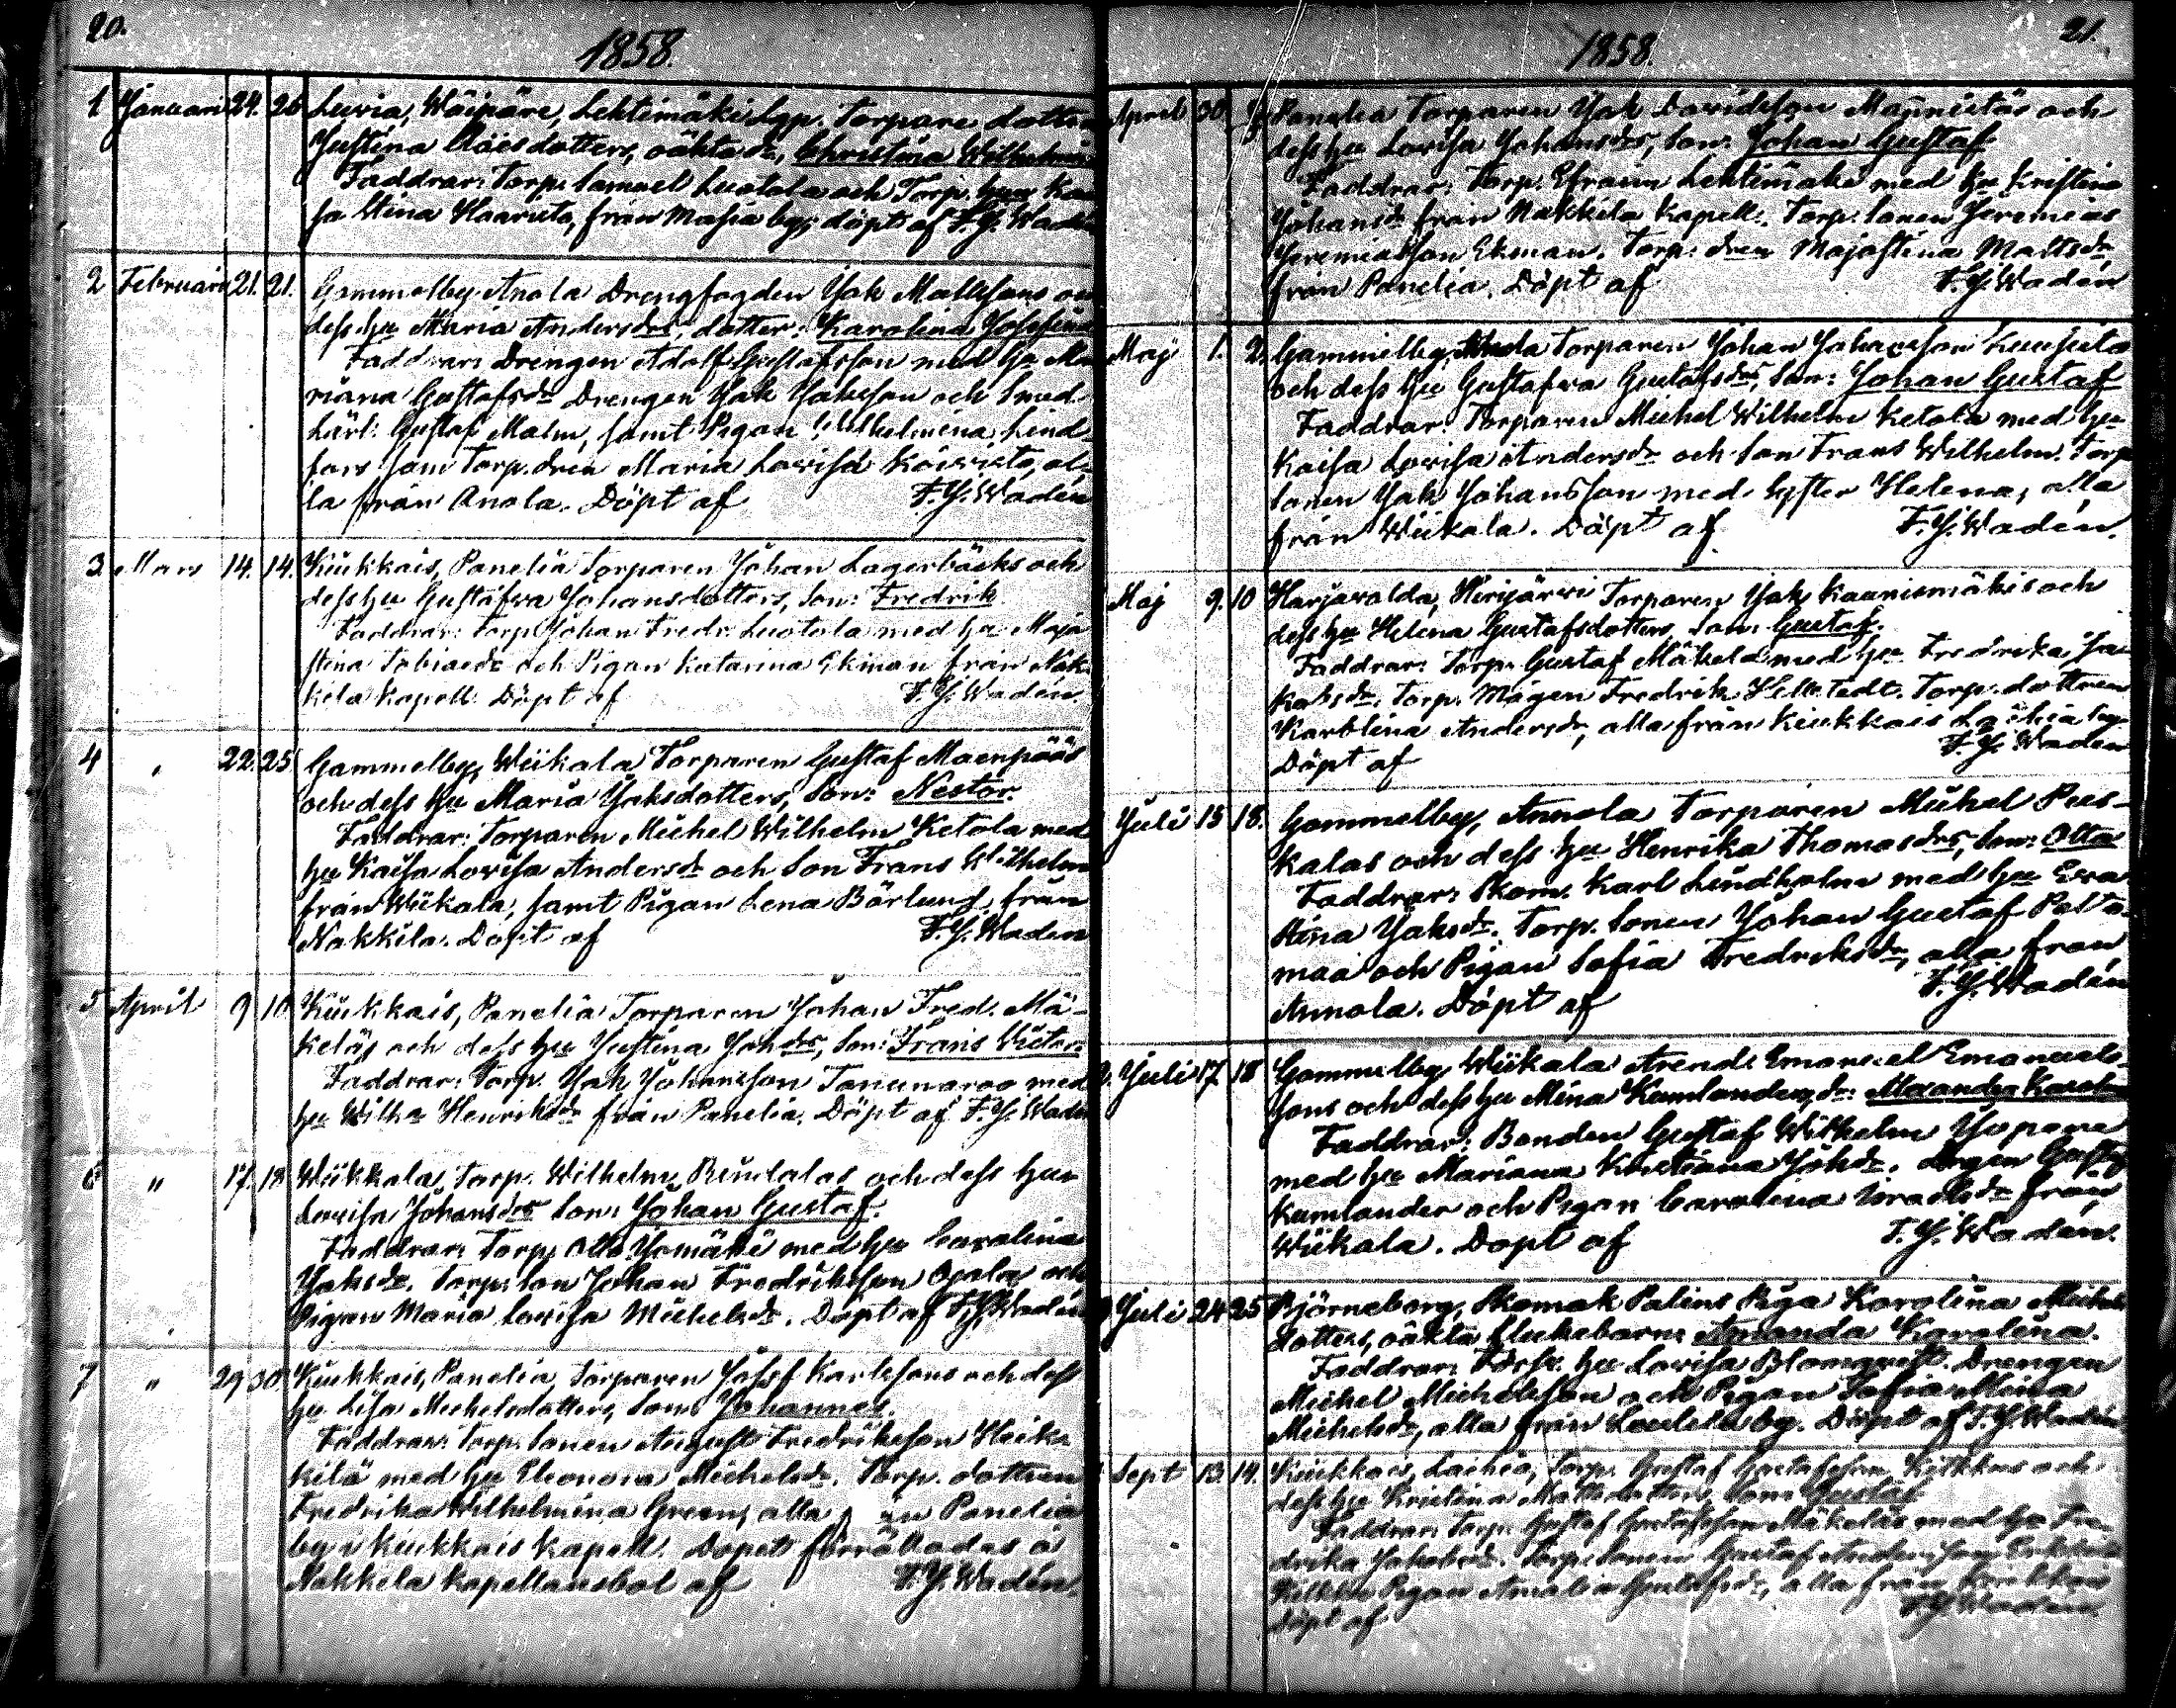 20.
1858.
1 Januari 24. 26 Luvia, Wäipäre, Lehtimäki Lgp. Torpare dotter
Justina oäkta dr, Christina Wilhelmina
Faddrar: Torp. Samuel Luotola och Torp. hu Kai
sa Stina Haavisto, från Masia by; döpt af F. J. Wadén
2 Februari 21. 21. Gammelby Anola Drengfogden Jak Mattssons och
dess hu Maria Andersdrs dotter: Karolina Josefina
Faddrar: Drengen Adolf Gustafsson med hu Ma
riana Gustafsdr Drengen Jak Jaksson och Smed
kärl: Gustaf Malm, samt Pigan Wilhelmina Lind
fors som Torp. dren Maria Lovisa Koivisto, al-
la från Anola. Döpt af F. J. Wadén
3 Mars 14. 14. Kiukkais, Panelia Torparen Johan Lagerbäcks och
dess hu Gustafva Johansdotters, Son: Fredrik
Faddrar: Torp. Johan Fredr. Luotola med hu Maja
stina Tobiaedr och Pigan Katarina Ekman från Nak-
kila kapell. Döpt af F. J. Wadén.
4 " 22. 25 Gammelby, Wiikala Torparen Gustaf Maenpääs
och dess hu Maria Jaksdotters, Son: Nestor.
Faddrar: Torparen Michel Wilhelm Ketola med
hu Kaisa Lovisa Andersdr och Son Frans Wilhelm
från Wiikala, samt Pigan Lena Börlund från
Nakkila. Döpt af F. J. Wadén
5 April 9 10 Kiukkais, Panelia Torparen Johan Fred. Mä-
keläs och dess hu Justina Johdrs, Son: Frans Victor.
Faddrar: Torp. Jak Johansson Tanunaroo med
hu Wilha Henriksdr från Panelia. Döpt af F. J. Wadén
6 " 17. 18 Wiikkala, Torp. Wilhelm och dess hu
Lovisa Johansdrs Son: Johan Gustaf.
Faddrar: Torp. Otto Jomäki med hu Carolina
Jaksdr. Torp: Son Johan Fredriksson Ojala och
Pigan Maria Lovisa Michelsdr. Döpt af F. J. Wadén
7 " 29 30 Kiukkais, Panelia, Torparen Josef Karlssons och dess
hu Lisa Michelsdotters, Son: Johannes.
Faddrar: Torp. Sonen August Fredriksson Heik-
kilä med hu Eleonora Michelsdr. Torp. dottren
Fredrika Wilhelmina Green, alla från Panelia
by i Kiukkais Kapell. Dopet förrättades å
Nakkila kapellansbol af F. J. Wadén.
21.
1858.
April 30 Panelia Torparen Jak Davidsson Mannistös och
dess hu Lovisa Johansdrs, Son: Johan Gustaf
Faddrar: Torp. Efraim Lehtimäki med hu Kristina
Johansdr från Nakkila Kapell. Torp: Sonen Jeremias
Jeremiasson Ekman. Torp: dren Majastina Mattsdr,
från Panelia. Döpt af F. J. Wadén
Maj 1. 2. Gammelby, Torparen Johan Johansson
och dess hu Gustafva Gustafsdrs, Son: Johan Gustaf
Faddrar: Torparen Michel Wilhelm Ketola med hu
Kaisa Lovisa Andersdr och Son Frans Wilhelm. Torp
Sonen Jak Johansson med syster Helena, alla
från Wiikala. Döpt af F. J. Wadén.
Maj 9. 10 Harjavalda, Hirijärvi Torparen Jak Kaunismäkis och
dess hu Helena Gustafsdotters, Son: Gustaf.
Faddrar: Torp. Gustaf Mäkelä med hu Fredrika Ja-
kobsdr. Torp. Mågen Fredrik Hellstedt. Torp. dottren
Karolina Andersdr, alla från Kiukkais Laihia by.
Döpt af F. J. Wadén
Juli 15 18. Gammelby, Annola Torparen Michel Pus-
kalas och dess hu Henrika Thomasdrs, Son: Otto
Faddrar: Skom. Karl Lindholm med hu Eva
Stina Jaksdr. Torp. Sonen Johan Gustaf Palta-
maa och Pigan Sofia Fredriksdr, alla från
Annola. Döpt af F. J. Wadén
Juli 17 18 Gammelby Wiikala Arend. Emanuel Emanuels-
sons och dess hu Mina Kumlanders, dr: Alexandra Karolina
Faddrar: Bonden Gustaf Wilhelm
med hu Mariana Kristiana Johdr. Drgen Gustaf
Kumlander och Pigan Carolina Israelsdr från
Wiikala. Döpt af F. J. Wadén.
Juli 24 25 Björneborg, Skomak Palins Piga Karolina Michels
dotters, oäkta flickebarn: Amanda Karolina.
Faddrar: hu Lovisa Blomqvist. Drengen
Michel Michelsson och Pigan Sofia Mina
Michelsdr, alla från Leulela by. Döpt af F. J. Wadén
Sept 13. 14. Kiukkais, Laihia, Torp. Gustaf Gustafsson och
dess hu Kristina Son: Gustaf
Faddrar: Torp. Gustaf Gustafsson Mäkeläs med hu Fre-
drika Jakobsdr. Torp: Sonen Gustaf Andersson
Pigan Amalia Gustafsdr, alla från Kiukkais
Döpt af F. J. Wadén